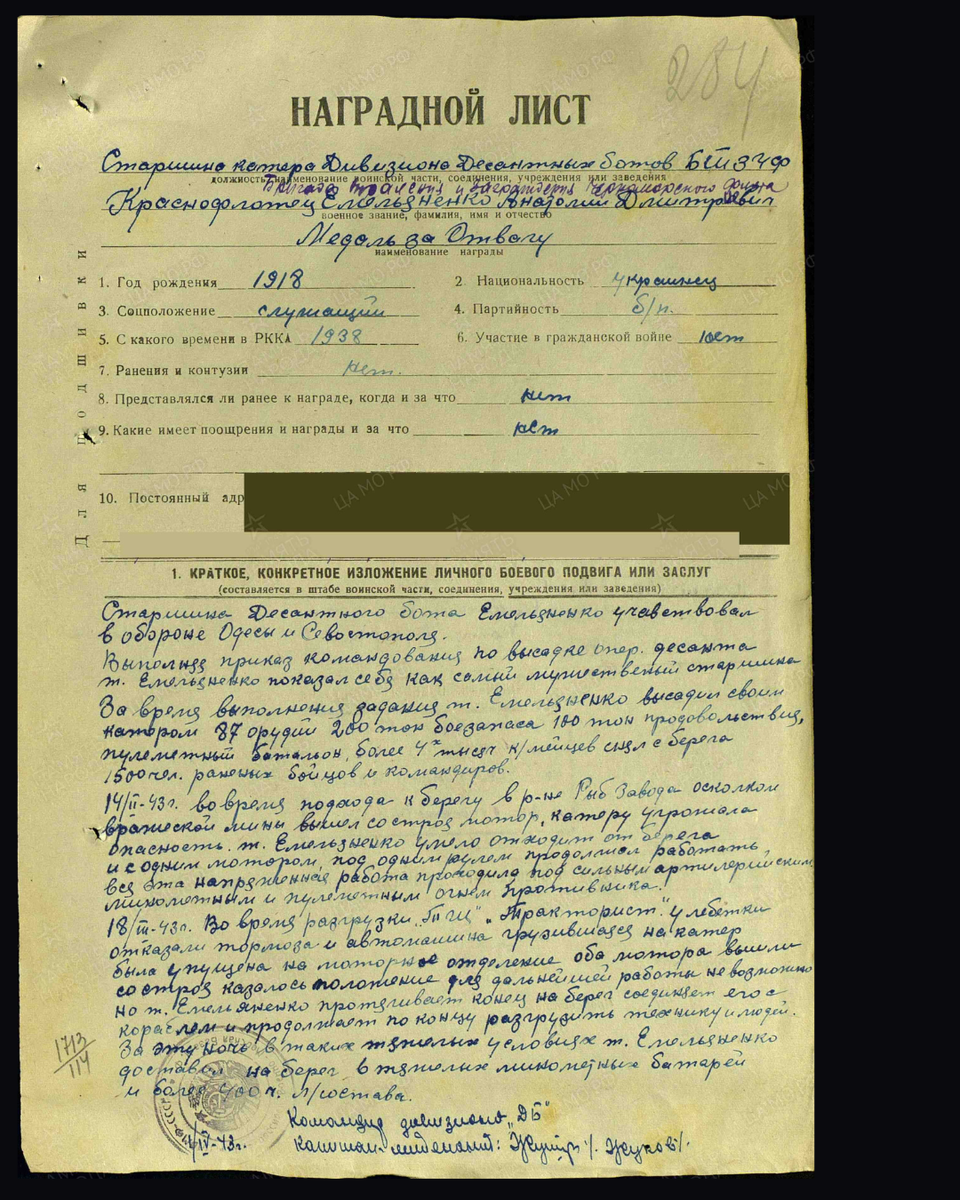 284
НАГРАДНОЙ ЛИСТ
Старшина катера Дивизиона Десантных ботов БТИЗЧФ
должность, наименование воинской части, соединения, учреждения или заведения
Бригада Траления и Заграждения Черноморского флота
Краснофлотец Емельяненко Анатолий Дмитриевич
военное звание, фамилия, имя и отчество
Медаль за Отвагу
наименование награды
1. Год рождения 1918 2. Национальность украинец
3. Соцположение служащий 4. Партийность б/п.
5. С какого времени в РККА 1938 6. Участие в гражданской войне нет
7. Ранения и контузии нет.
8. Представлялся ли ранее к награде, когда и за что нет
9. Какие имеет поощрения и награды и за что нет
10. Постоянный адр
Для подшивки
1. КРАТКОЕ, КОНКРЕТНОЕ ИЗЛОЖЕНИЕ ЛИЧНОГО БОЕВОГО ПОДВИГА ИЛИ ЗАСЛУГ
(составляется в штабе воинской части, соединения, учреждения или заведения)
Старшина Десантного бота Емельяненко учавствовал
в обороне Одесы и Севостополя.
Выполняя приказ командования по высадке опер. десанта
т. Емельяненко показал себя как самый мужественый старшина
За время выполнения задания т. Емельяненко высадил своим
катором 87 орудий 200 тон боезапаса 100 тон продовольствия,
пулеметный батальон, более 4х тысяч к/мейцев снял с берега
1500 чел. раненых бойцов и командиров.
14/II-43г. во время подхода к берегу в р-не Рыб Завода осколком
вражеской мины вышел со строя мотор, катеру угрожала
опасность. т. Емельяненко умело отходит от берега
и с одним мотором, под одним рулем продолжал работать
вся эта напряженная работа проходила под сильным артилерийским
минометным и пулеметным огнем противника.
18/III-43г. Во время разгрузки "ТЩ" "Тракторист" у лебедки
отказали тормоза и автомашина грузившаяся на катер
была упущена на моторное отделение оба мотора вышли
со строя казалось положение для дальнейшей работы невозможно
но т. Емельяненко протягивает конец на берег соединяет его с
кораблем и продолжает по концу разгрузить технику и людей.
За эту ночь в таких тяжелых условиях т. Емельяненко
доставил на берег в тяжелых минометных батарей
и более 400 ч. л/состава.
1713/114
Командир дивизиона "ДБ"
IV-43г. капитан-лейтенант: /Жуков/.
ЦАМО.РФ